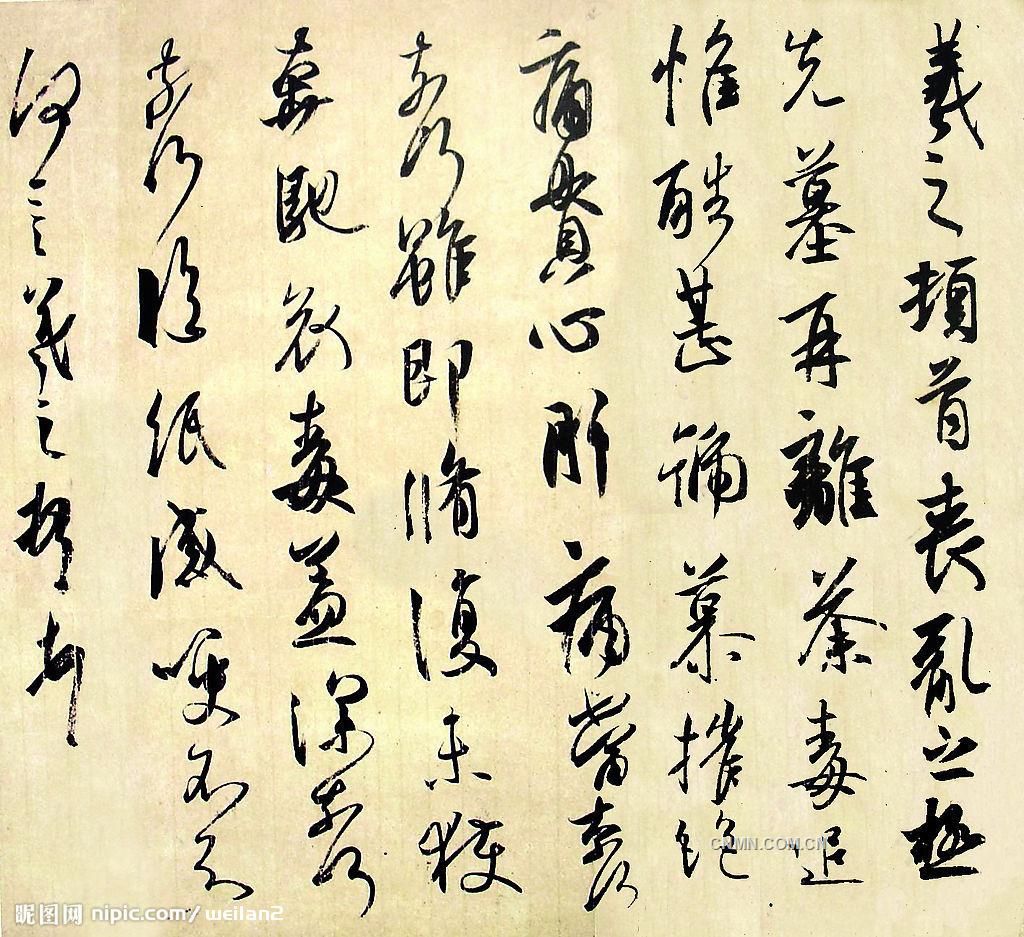 羲之頓首喪亂之極
先墓再離荼毒追
惟酷甚號慕摧絕
痛貫心肝痛當奈何
奈何雖即脩復未獲
奔馳哀毒益深奈何
奈何臨紙感哽不知
何言羲之頓首頓首
CNMN.COM.CN
昵图网 nipic.com/ weilan2